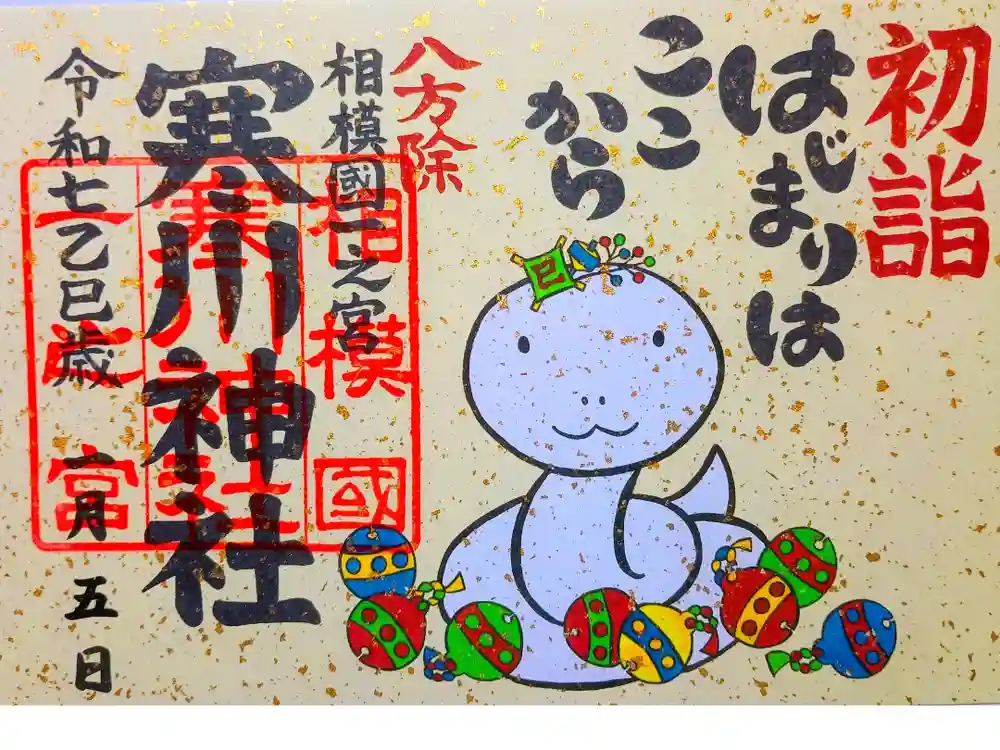 初詣
はじまりは
ここ
から
八方除
相模國一之宮
寒川神社
令和七乙巳歳
一月五日
巳
相模國
寒川神社
一之宮